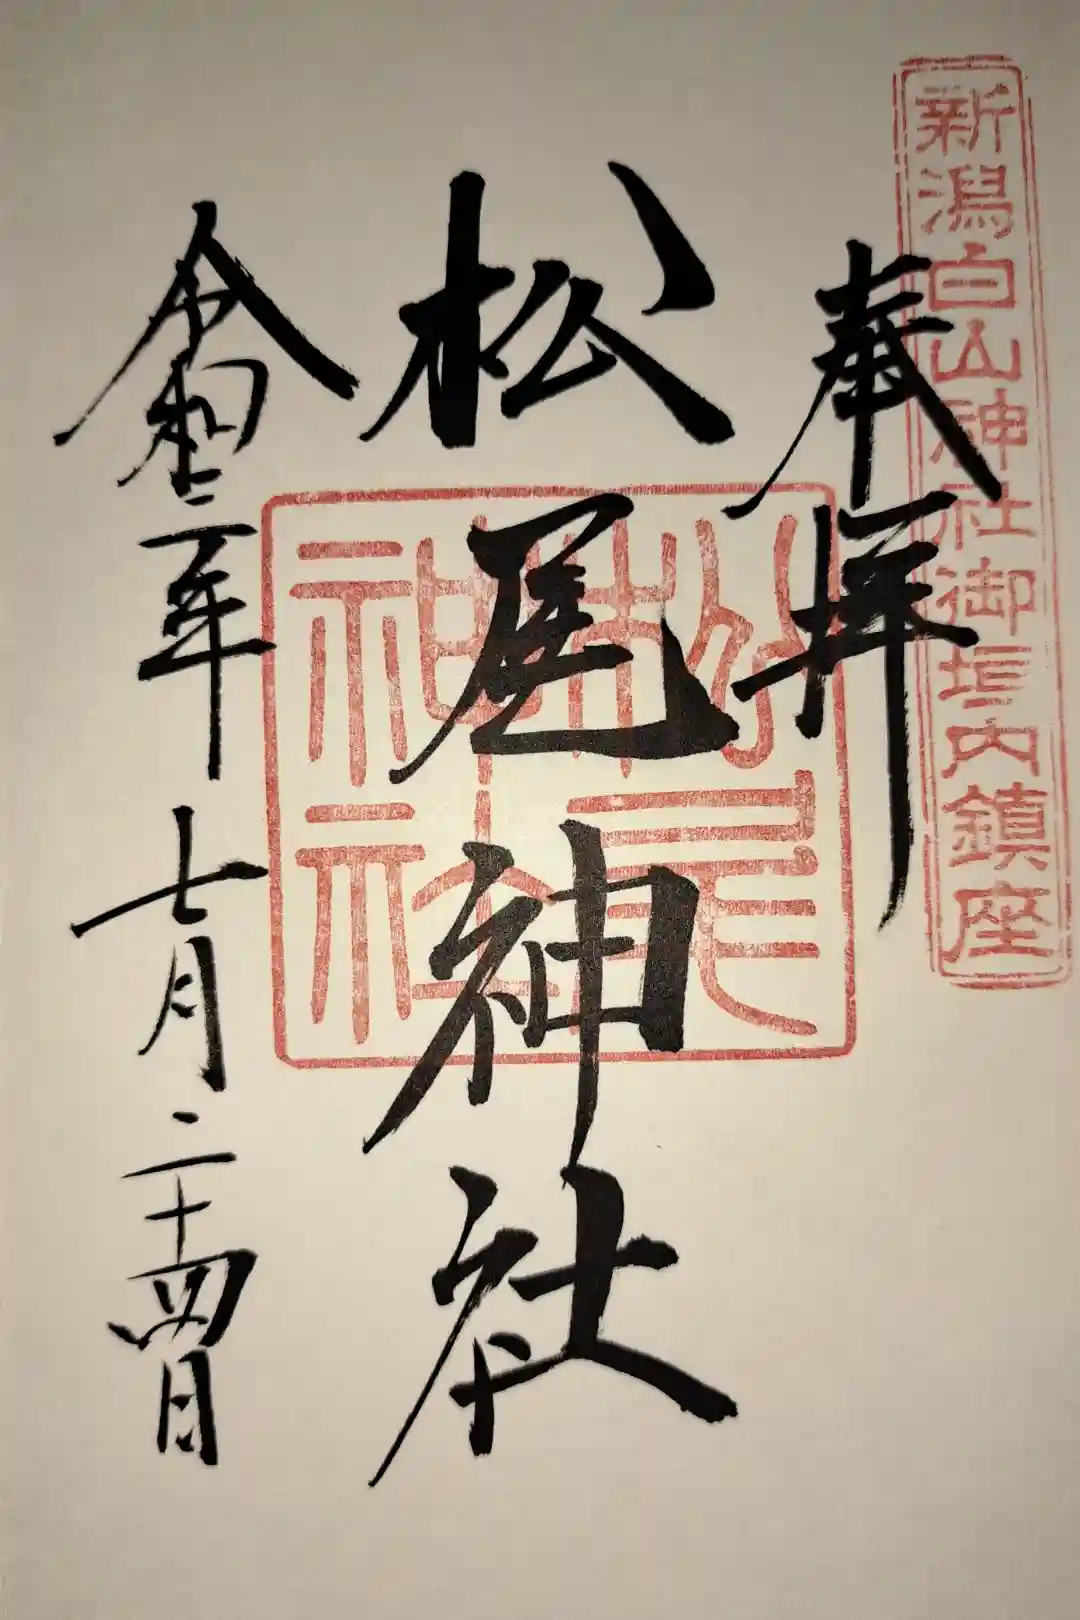 新潟白山神社御垣内鎮座
奉拝
松尾神社
松尾神社
令和三年七月二十四日